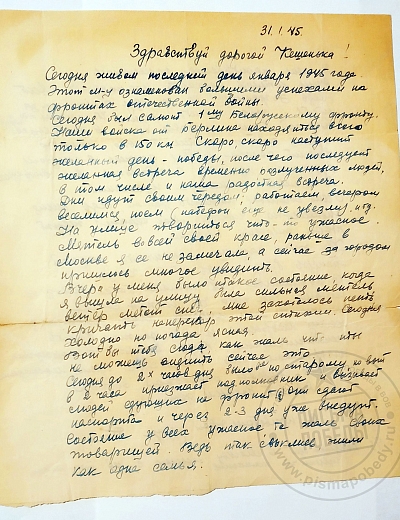 31.1.45.
Здравствуй дорогой Кешенька!
Сегодня живем последний день января 1945 года.
Этот м-ц ознаменован большими успехами на
фронтах отечественной войны.
Сегодня был салют 1му Белорусскому фронту.
Наши войска от Берлина находятся всего
только в 150 км Скоро, скоро наступит
желанный день - победы, после чего последует
желанная встреча временно разлученных людей,
в том числе и наша радостная встреча.
Дни идут своим чередом; работаем вечером
веселимся, поем (патефон еще не увезли) и др.
На улице творится что-то ужасное.
Метель во всей своей красе, раньше в
Москве я ее не замечала, а сейчас за городом
пришлось многое увидеть.
Вчера у меня было такое состояние, когда
я вышла на улицу была сильная метель
ветер метет снег, мне захотелось петь
кричать наперекор этой стихии. Сегодня
холодно но погода ясная.
Вот бы тебя сюда, как жаль что ты
не можешь видеть сейчас это
Сегодня до 2х часов дня было все по старому но вот
в 2 часа приезжает подполковник и вызывает
людей едущих на фронт, они сдают
паспорта и через 2-3 дня уже выедут.
Состояние у всех ужасное жаль своих
товарищей. Ведь так свыклись жили
как одна семья.
pismapobedy.ru